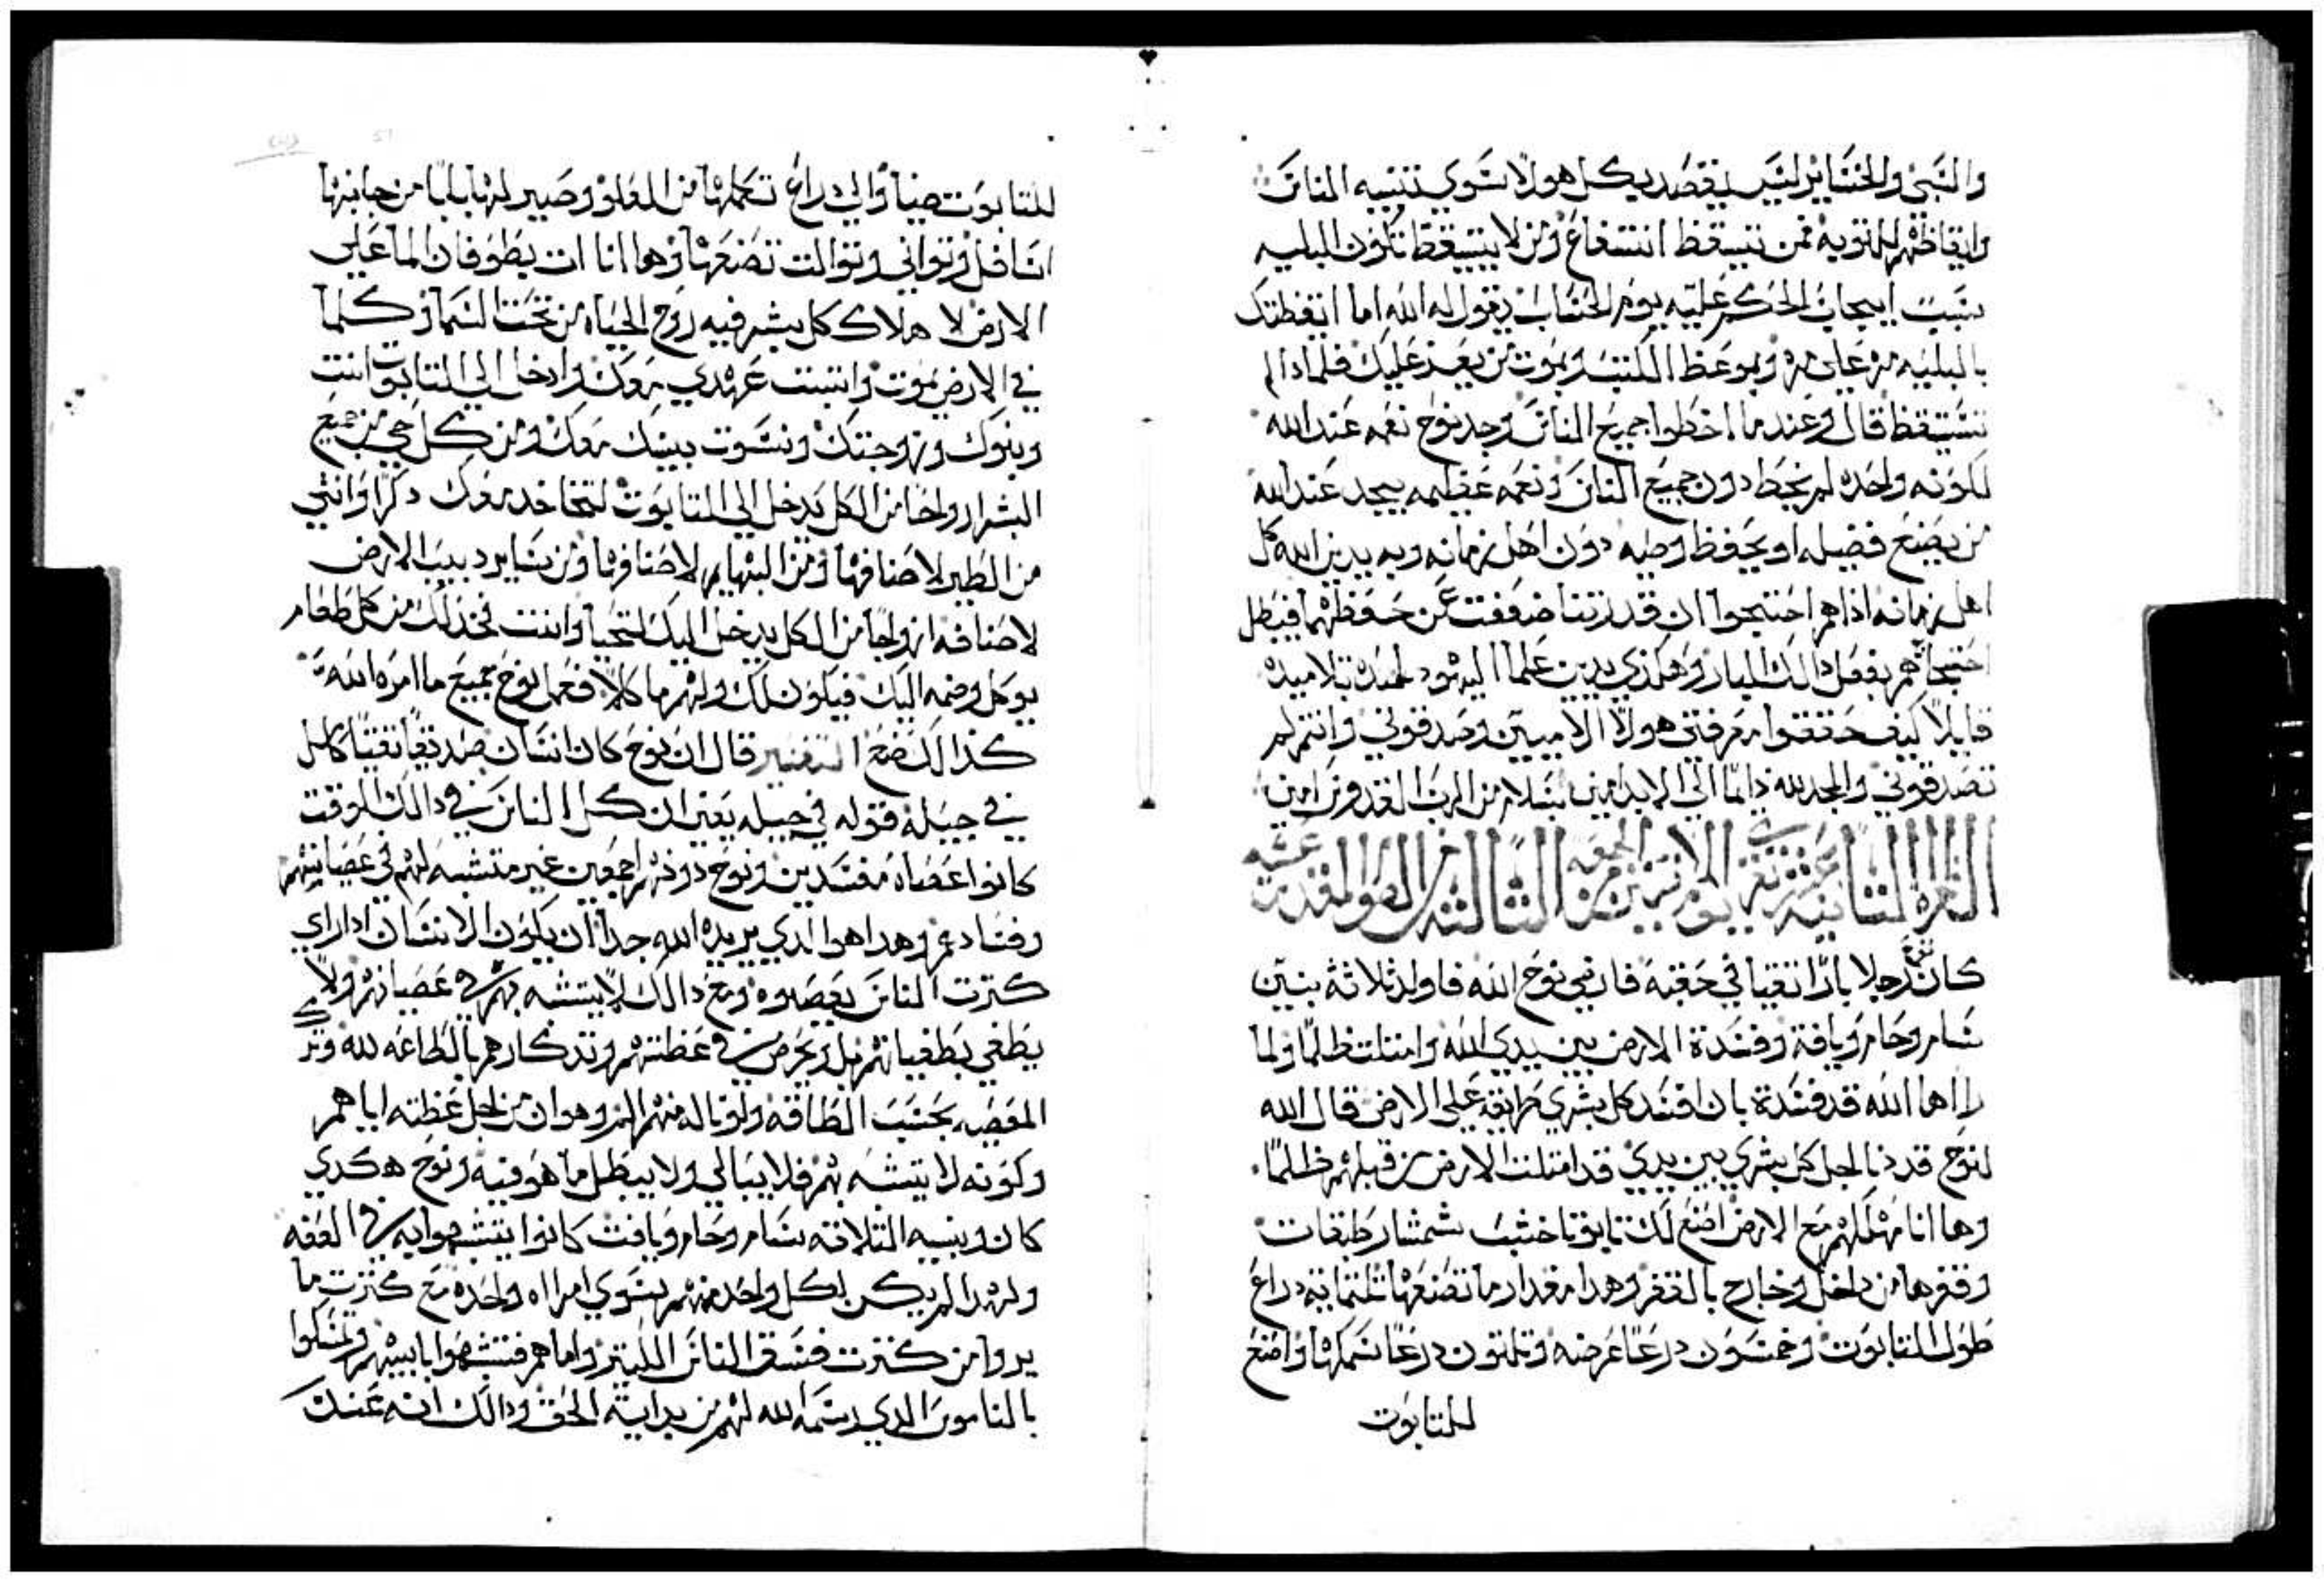 والسبي والخساير ليس يقصد بكل هولا سوي تنبيه الناس
وايقاظهم للتوبه فمن تيسقظ انتفاع ومن لا يتيسقظ تكون البليه
سبب ايجاب الحكم عليه يوم الحساب يقول له الله اما ايقظتك
بالبليه مره علي مره وبموعظ الكتب وبموت من يعز عليك فلماذا لم
تستيقظ قال وعندما اخطوا جميع الناس وجد نوح نعمه عند الله
لكونه واحده لم يخط دون جميع الناس ونعمه عظيمه يجد عند الله
من يصنع فضيله او يحفظ وصيه دون اهل زمانه وبه يدين الله كل
اهل زمانه اذا هم احتجوا ان قدرتنا ضعفت عن حفظها فيبطل
احتجاجهم بفعل ذالك البار وهكذي يدين علما اليهود لهده تلاميده
قايلا كيف حققوا معرفتي هولا الاميين وصدقوني وانتم لم
تصدقوني والمجد لله دايما الي الابد امين بسلام من الرب القدوس امين
القراة الثانيه عشر تقري يوم الاثنين من الجمعه الثالثه من الصوم المقدس
كان نوح رجلا بارا تقيا في حقبه فارضي نوح الله فاولد ثلاثة بنين
سام وحام ويافة وفسدة الارض بين يدي الله وامتلت ظلما ولما
راها الله قد فسدة بان افسد كل بشري طريقه علي الارض قال الله
لنوح قد دنا اجل كل بشري بين يدي قد امتلت الارض من قبلهم ظلما
وها انا مهلكهم مع الارض اصنع لك تابوتا خشب شمشار طبقات
وقفرها من داخل وخارج بالقفر وهدا مقدار ما تصنعها تلتماية دراع
طول التابوت وخمسون درعا عرضه وتلتون درعا سمكها واصنع
للتابوت
للتابوت ضياً والي دراع تكملها من العلو وصير لها باباً من جانبها
اسافل وتواني وتوالت تصنعها وها انا ات بطوفان الما علي
الارض لا هلاك كل بشر فيه روح الحياه من تحت السما وكلما
في الارض يموت واتبت عهدي معك وادخل الي التابوت انت
وبنوك وزوجتك ونسوت بنيك معك ومن كل حي من جميع
البشر ازواجا من الكل يدخل الي التابوت لتحيا خد معك دكرا وانتي
من الطير لاصنافها ومن البهايم لاصنافها ومن ساير دبيب الارض
لاصنافه ازواجا من الكل يدخل اليك لتحيا وانت فخد لك من كل طعام
يوكل وضمه اليك فيكون لك ولهم ماكلا ففعل نوح جميع ما امره الله
كذالك صنع التفسير قال ان نوح كان انسان صديقا تقيا كامل
في جيله فقوله في جيله يعني ان كل الناس في دالك الوقت
كانوا عصاه مفسدين ونوح دونهم اجمعين غير متشبه لهم في عصيانهم
وفسادهم وهدا هوا الدي يريده الله جدا ان يكون الانسان ادا راي
كترت الناس يعصوه ومع دالك لا يتشبه بهم في عصيانهم ولا
يطغي بطغيانهم بل ويحرص في عظتهم وتدكارهم بالطاعه لله وترك
المعصيه بحسب الطاقه ولو ناله منهم الم وهوان من اجل عظته اياهم
وكونه لا يتشبه بهم فلا يبالي ولا يبطل ما هو فيه ونوح هكدي
كان وبنيه التلاته سام وحام ويافت كانوا يتشبهوا به في العفه
ولهدا لم يكن لكل واحد منهم سوي امراه واحده مع كترت ما
يروا من كترت فسق الناس الكتير واما هم فتشبهوا بابيهم وتمسكوا
بالناموس الدي رسمه الله لهم من بداية الخلق ودالك انه عندك